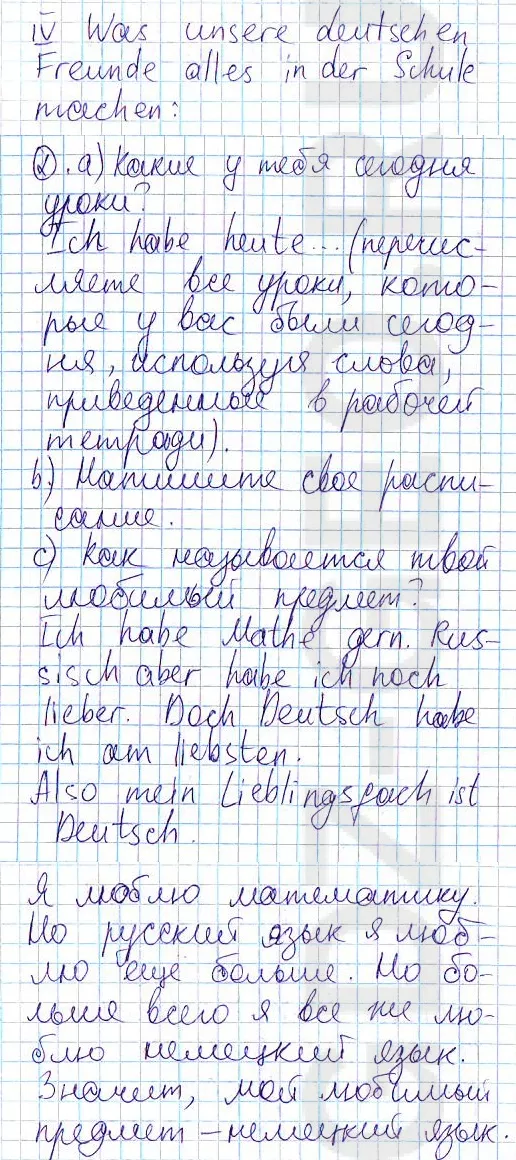 IV Was unsere deutschen
Freunde alles in der Schule
machen:
2. a) Какие у тебя сегодня
уроки?
Ich habe heute... (перечис-
ляете все уроки, кото-
рые у вас были сегод-
ня, используя слова,
приведенные в рабочей
тетради).
b) Напишите свое распи-
сание.
c) Как называется твой
любимый предмет?
Ich habe Mathe gern. Rus-
sisch aber habe ich noch
lieber. Doch Deutsch habe
ich am liebsten.
Also mein Lieblingsfach ist
Deutsch.
Я люблю математику.
Но русский язык я люб-
лю еще больше. Но бо-
льше всего я все же лю-
блю немецкий язык.
Значит, мой любимый
предмет – немецкий язык.